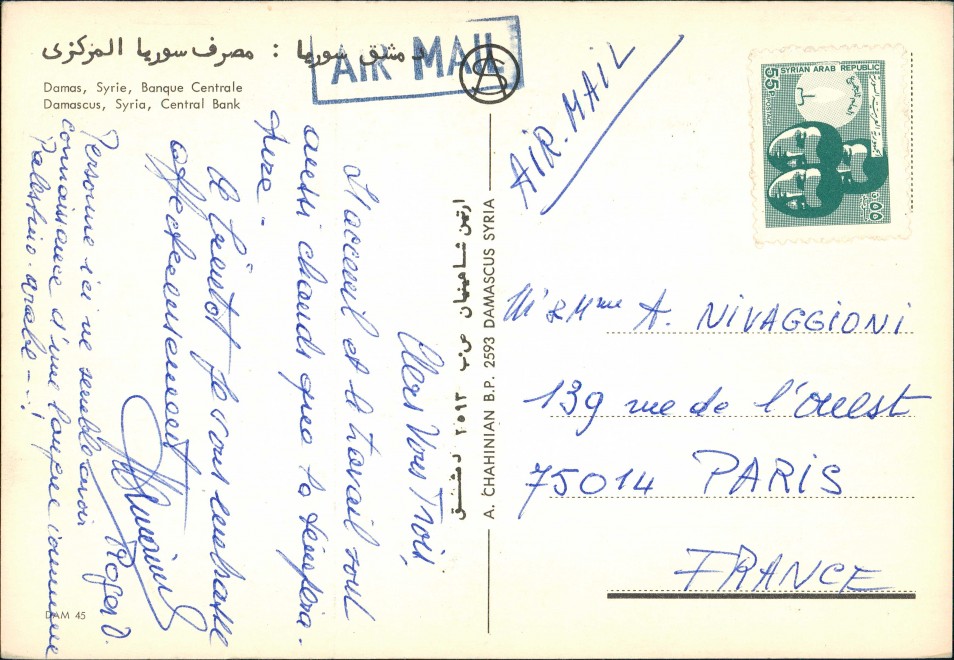 دمشق سوريا : مصرف سوريا المركزى
Damas, Syrie, Banque Centrale
Damascus, Syria, Central Bank
AIR MAIL
AIR-MAIL
SYRIAN ARAB REPUBLIC
55 P
POSTAGE
Chers Vous Trois,
L'accueil et le travail sont
aussi chauds que la tempéra-
ture -
A bientôt Je vous embrasse
affectueusement
Roger
Personne ici ne semble avoir
connaissance d'une langue commune
Palestino-arabe --!
ارتين شاهينيان ص.ب ٢٥٩٣ دمشق
A. CHAHINIAN B.P. 2593 DAMASCUS SYRIA
Mr & Mme A. NIVAGGIONI
139 rue de l'Ouest
75014 PARIS
FRANCE
DAM 45